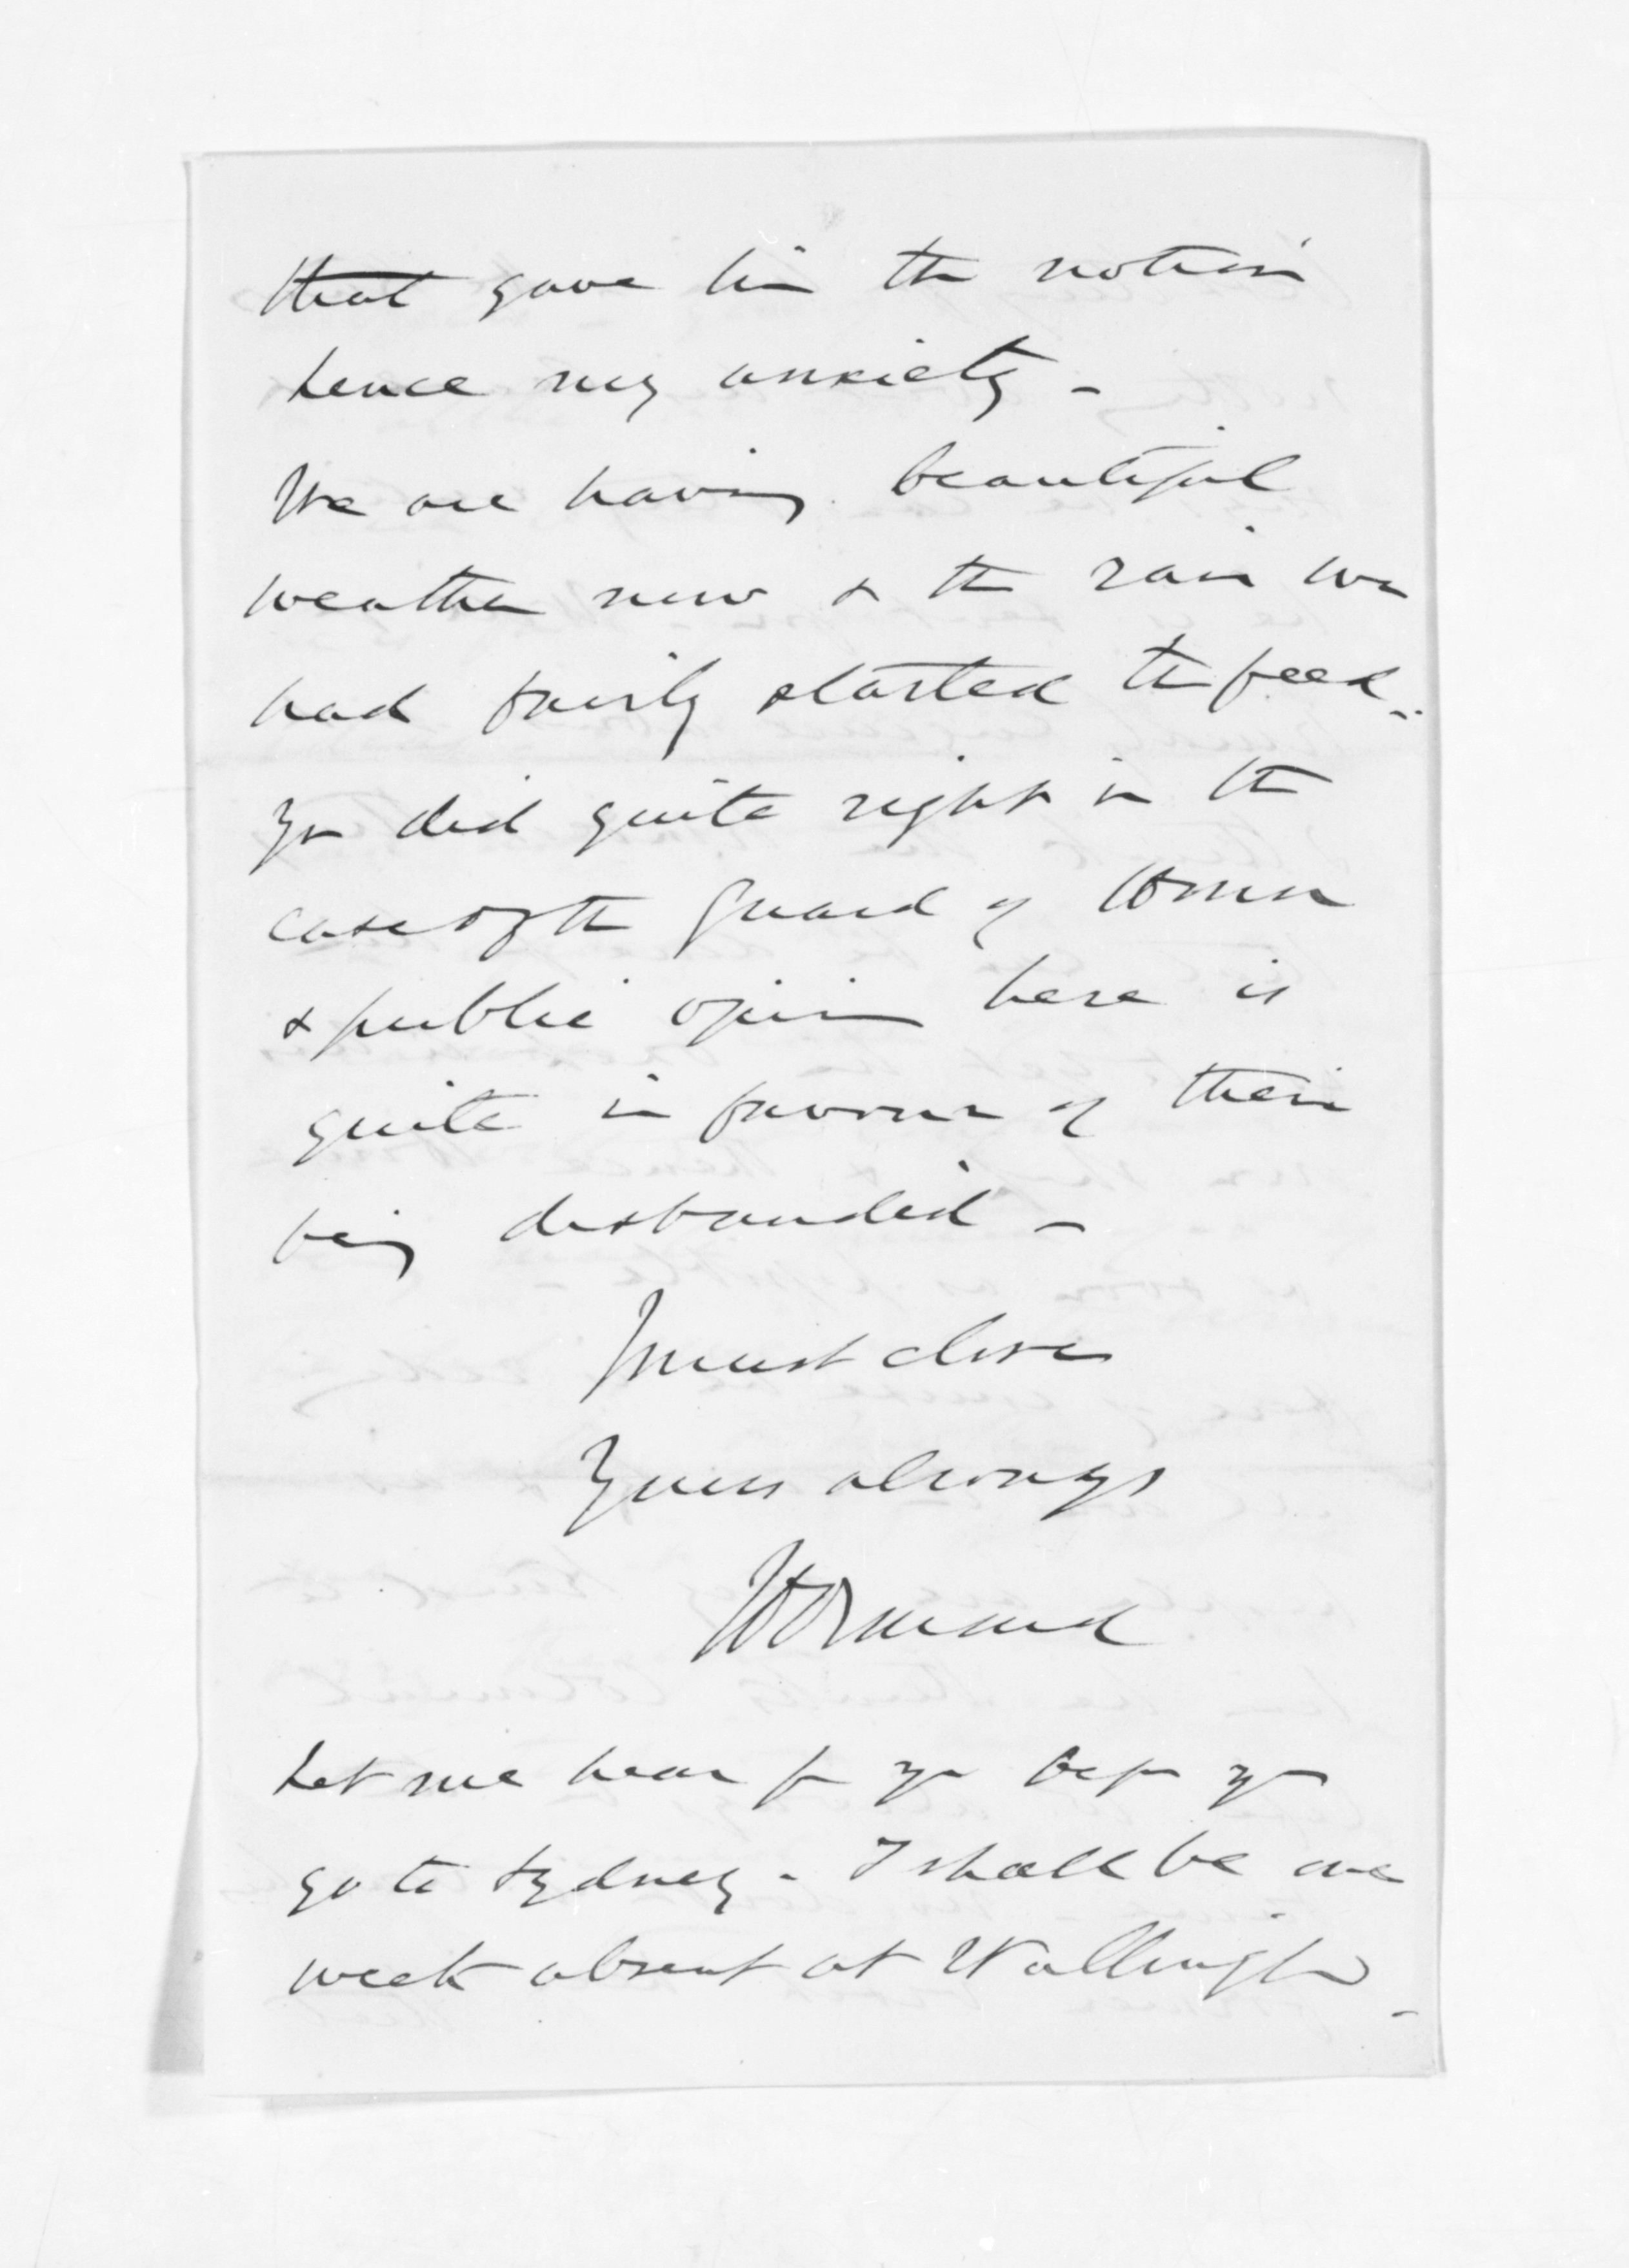 that gave him the notion
hence my anxiety -
We are having beautiful
weather now & the rain we
had fairly started the feed -
You did quite right in the
case of the Guard of Honor
& public opinion here is
quite in favour of their
being disbanded -
I must close
Yours always
JD Ormond
Let me hear from you before you
go to Sydney - I shall be one
week absent at Wallingford -